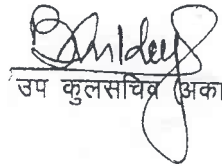 उप कुलसचिव (अका